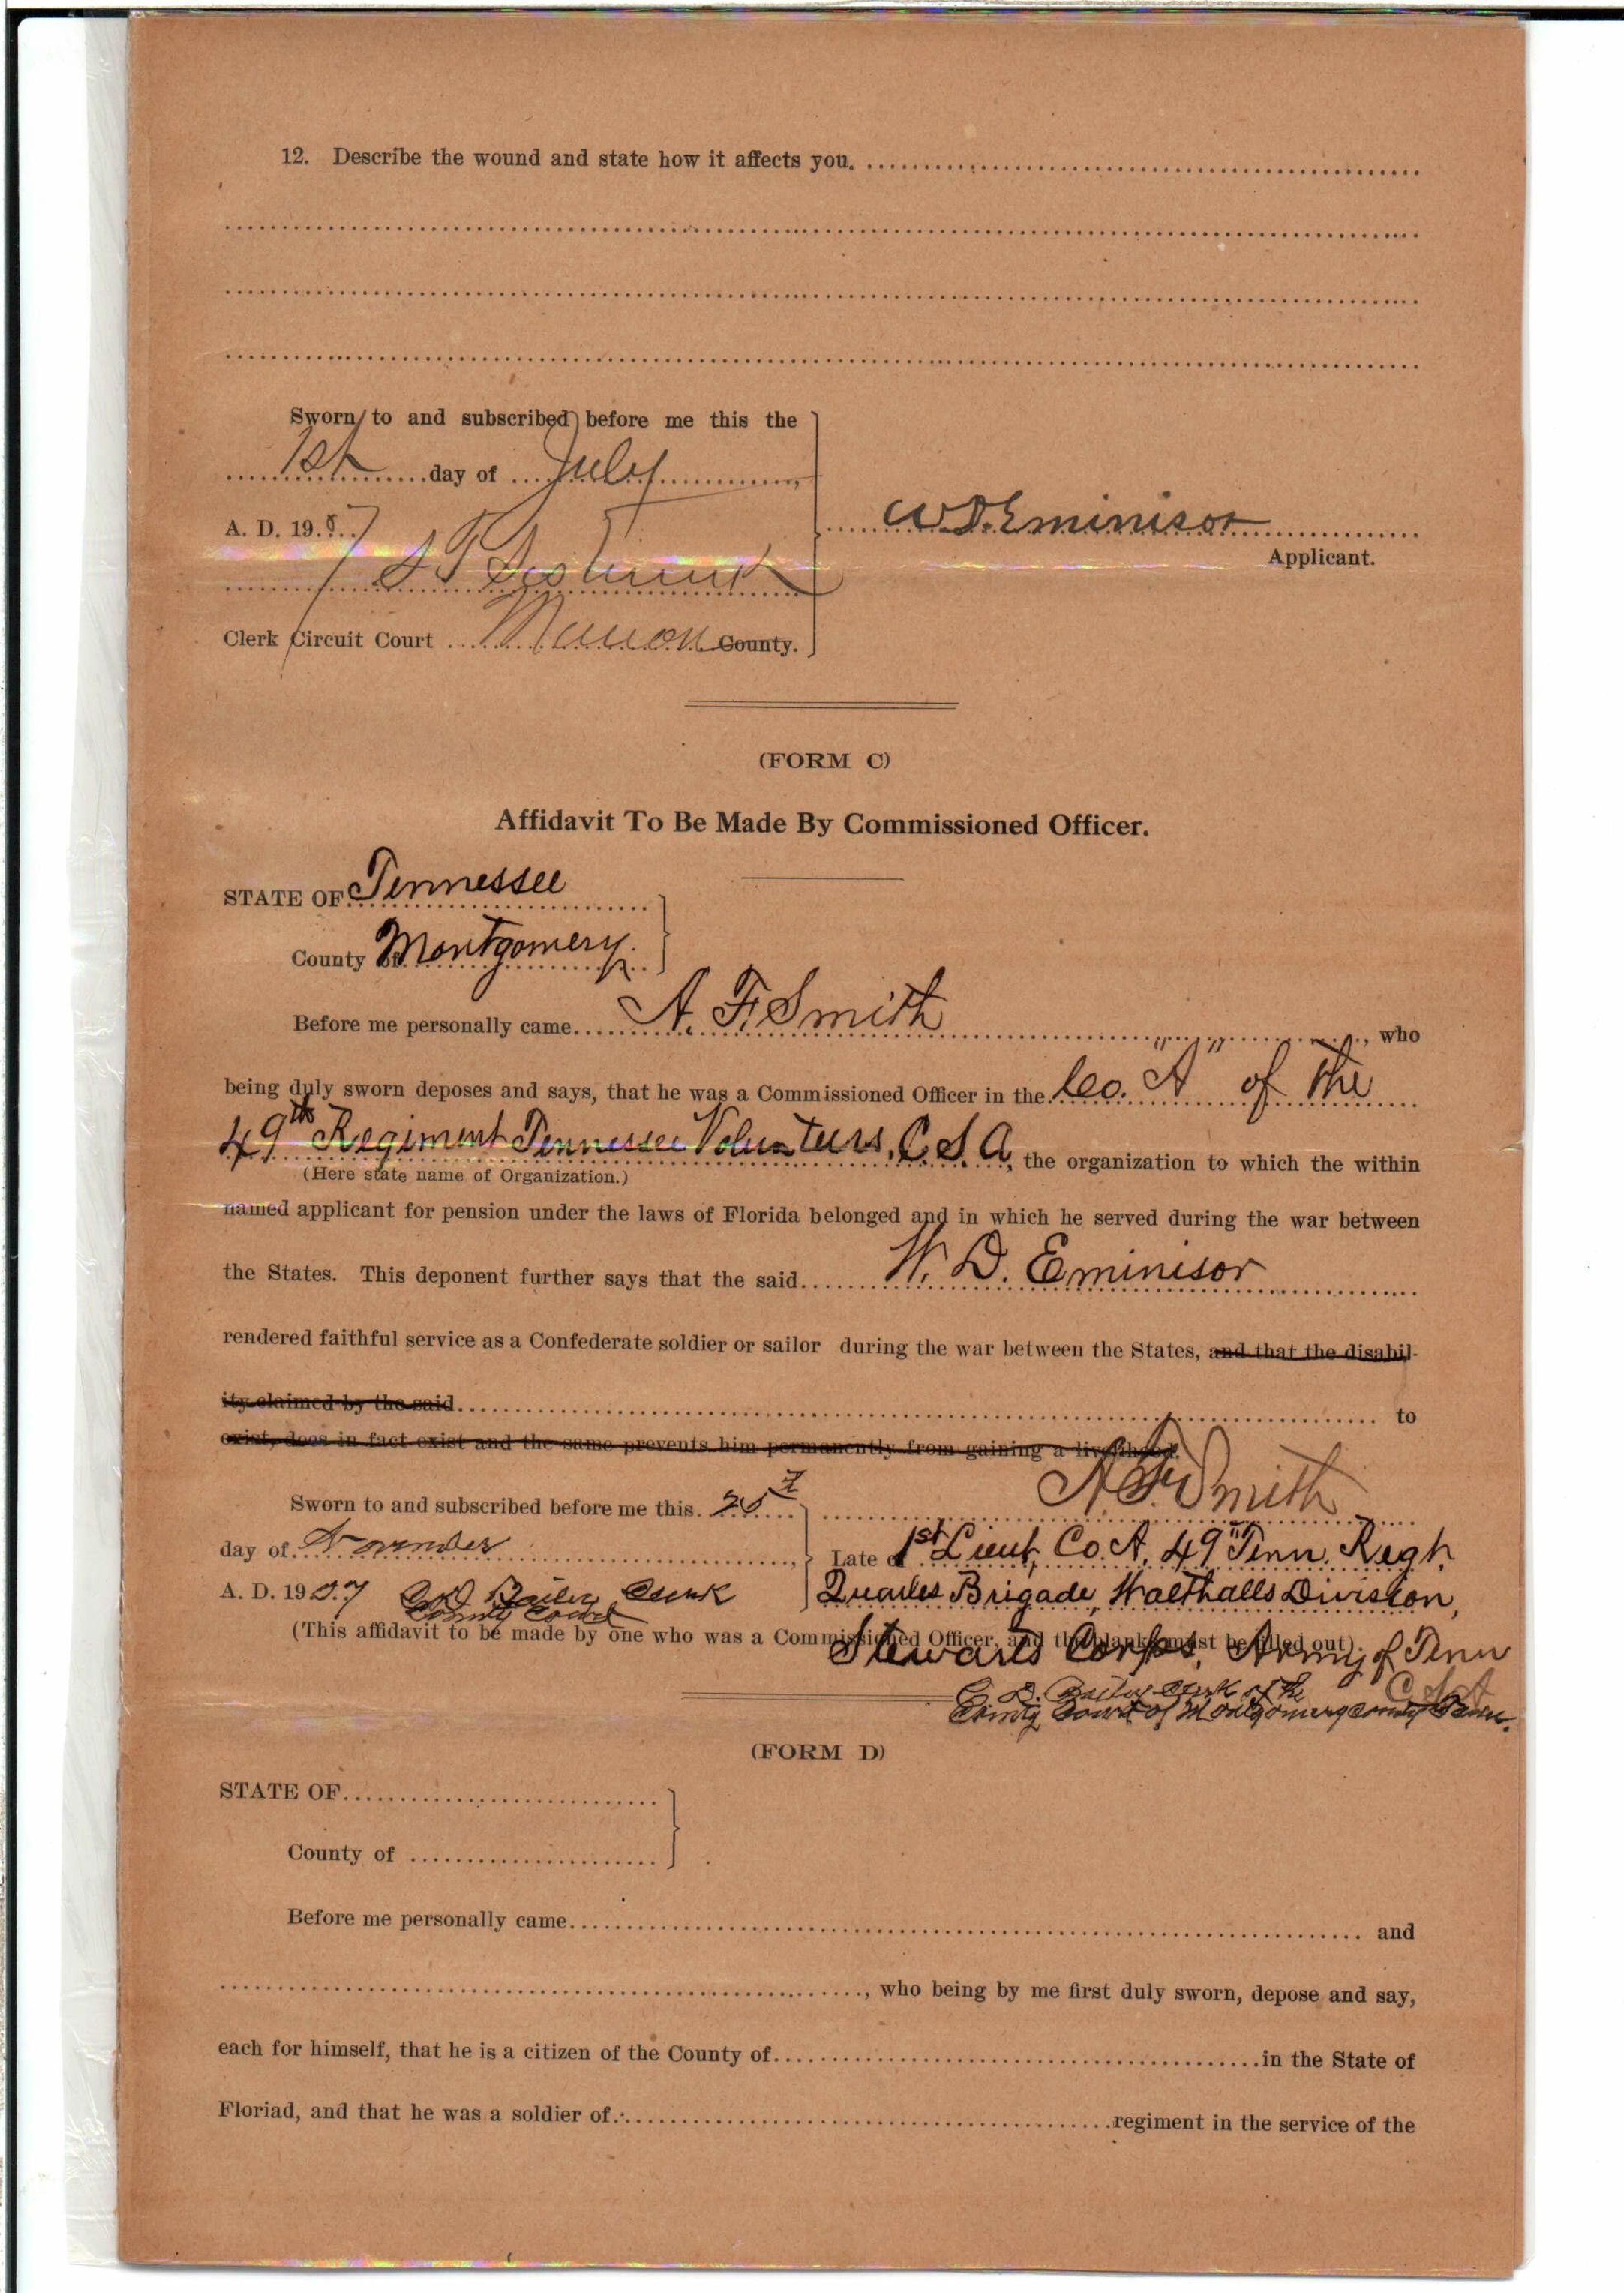 12. Describe the wound and state how it affects you.
Sworn to and subscribed before me this the
1st day of July,
A. D. 1907
W. D. Eminisor
Applicant.
Clerk Circuit Court Marion County.
(FORM C)
Affidavit To Be Made By Commissioned Officer.
STATE OF Tennessee
County of Montgomery.
Before me personally came A. F. Smith, who
being duly sworn deposes and says, that he was a Commissioned Officer in the Co. A of the
49th Regiment Tennessee Volunteers, C. S. A. the organization to which the within
(Here state name of Organization.)
named applicant for pension under the laws of Florida belonged and in which he served during the war between
the States. This deponent further says that the said W. D. Eminisor
rendered faithful service as a Confederate soldier or sailor during the war between the States, and that the disabil-
ity claimed by the said to
exist, does in fact exist and the same prevents him permanently from gaining a livelihood.
A. F. Smith
Sworn to and subscribed before me this 25
day of November,
Late of 1st Lieut, Co. A, 49" Tenn. Regt.
A. D. 1907 C. D. Bailey Clerk
County Court
Quarles Brigade, Walthalls Division,
(This affidavit to be made by one who was a Commissioned Officer, and the blanks must be filled out).
Stewarts Corps, Army of Tenn
C S A
C. D. Bailey Clerk of the
County Court of Montgomery County Tenn.
(FORM D)
STATE OF
County of
Before me personally came and
, who being by me first duly sworn, depose and say,
each for himself, that he is a citizen of the County of in the State of
Floriad, and that he was a soldier of regiment in the service of the